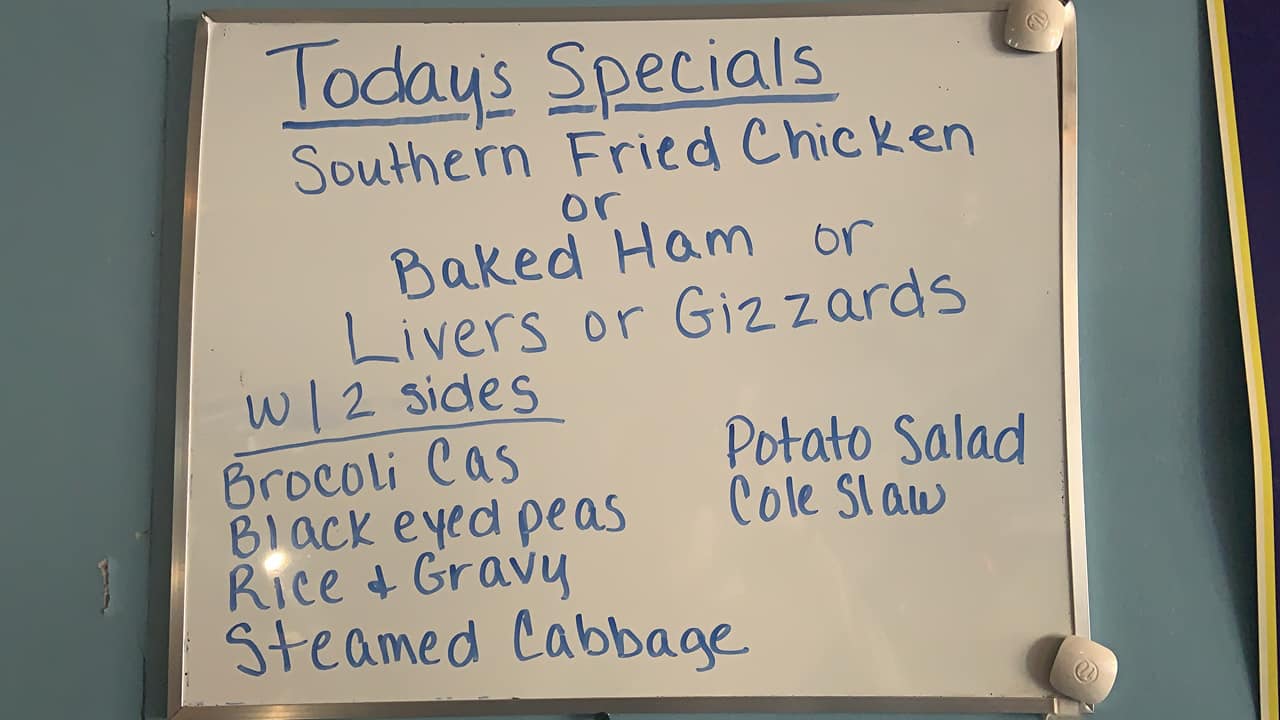 Today's Specials
Southern Fried Chicken
or
Baked Ham or
Livers or Gizzards
w/2 sides
Brocoli Cas
Black eyed peas
Rice & Gravy
Steamed Cabbage
Potato Salad
Cole Slaw